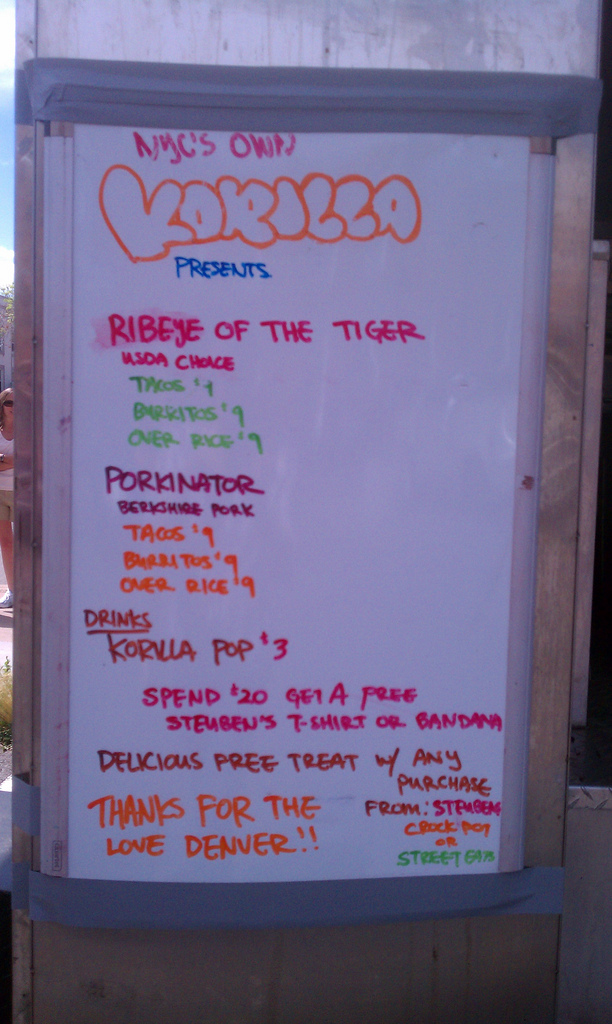 NYC'S OWN
KORILLA
PRESENTS
RIBEYE OF THE TIGER
USDA CHOICE
TACOS $9
BURRITOS $9
OVER RICE $9
PORKINATOR
BERKSHIRE PORK
TACOS $9
BURRITOS $9
OVER RICE $9
DRINKS
KORILLA POP $3
SPEND $20 GET A FREE
STEUBEN'S T-SHIRT OR BANDANA
DELICIOUS FREE TREAT W/ ANY
PURCHASE
FROM: STEUBENS
CROCK POT
OR
STREET EATS
THANKS FOR THE
LOVE DENVER!!